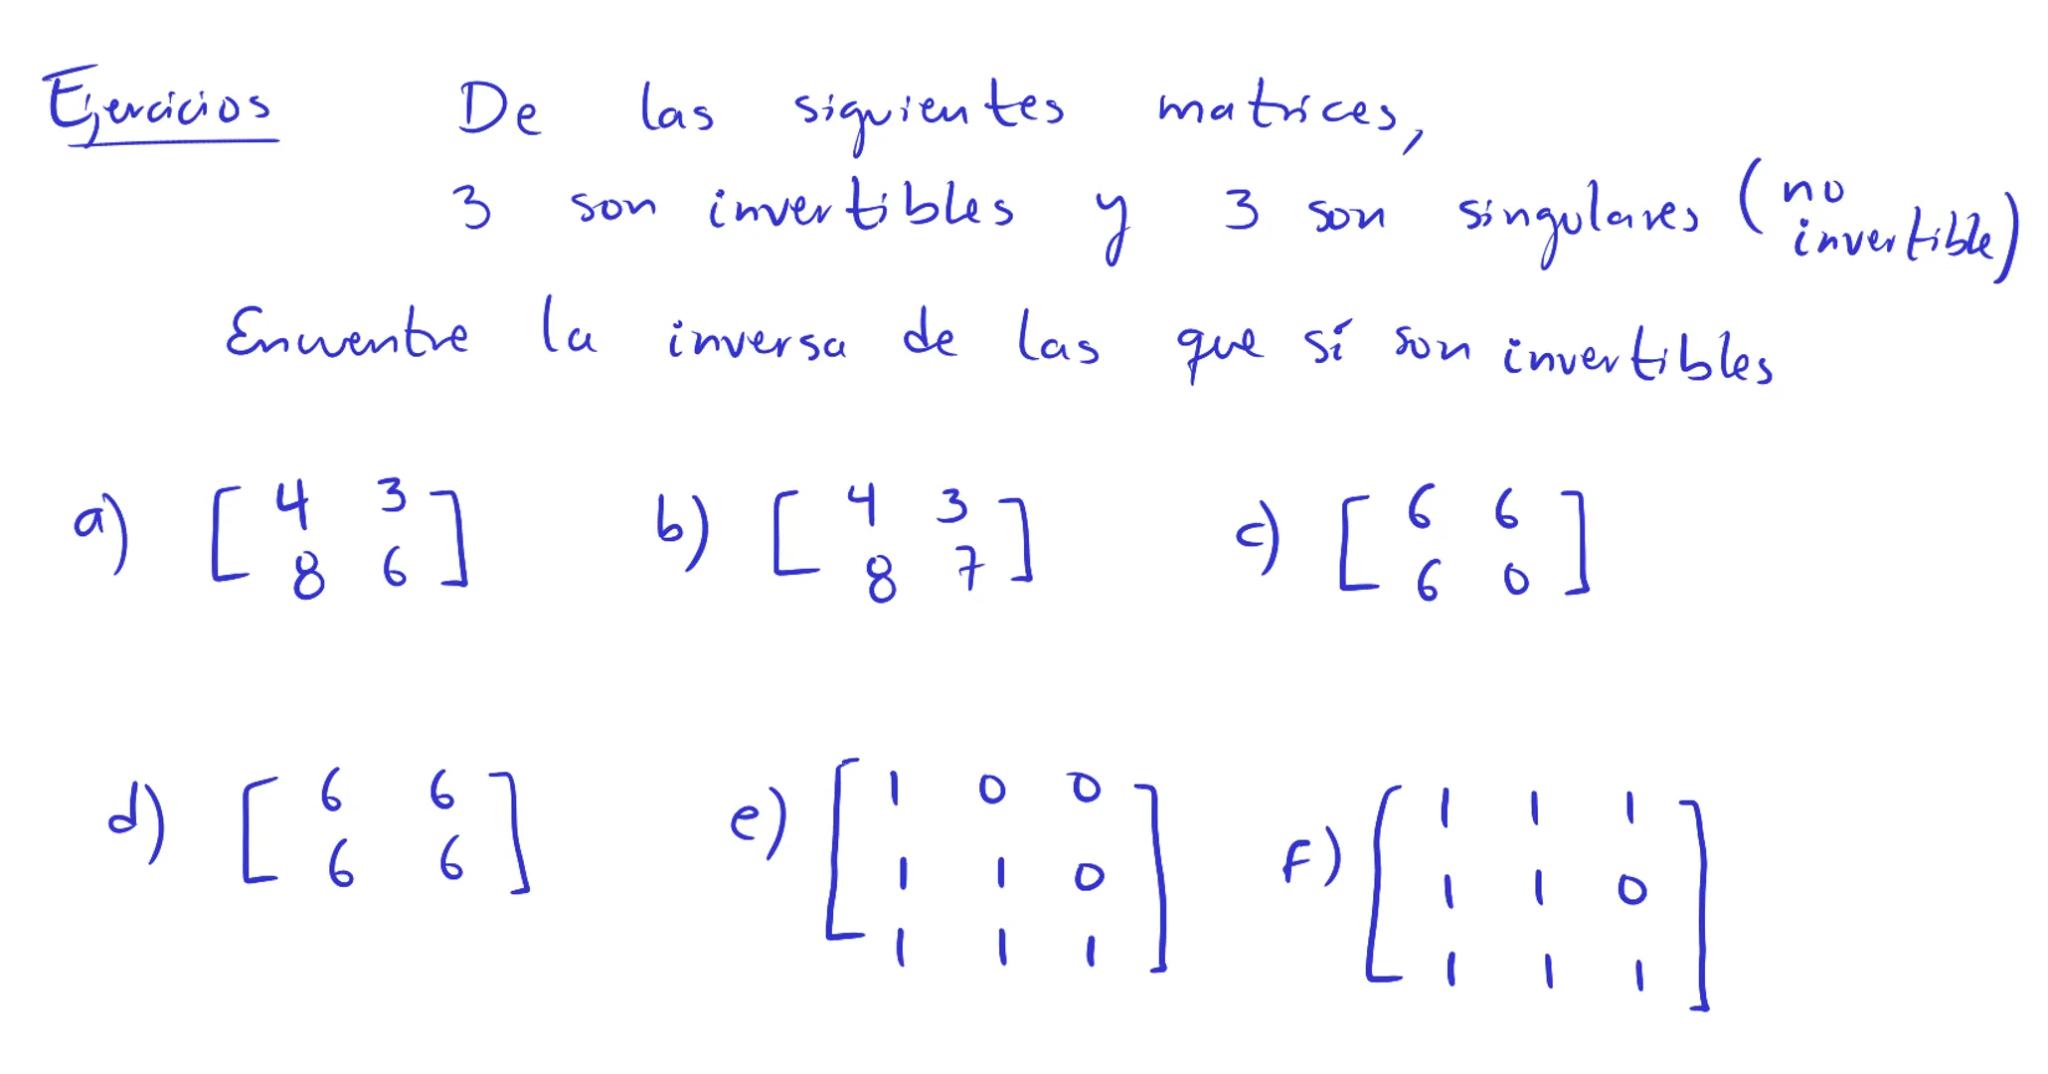 Ejercicios De las siguientes matrices,
3 son invertibles y 3 son singulares (no invertible)
Encuentre la inversa de las que sí son invertibles
a) [ 4 3 b) [ 4 3 c) [ 6 6
8 6 ] 8 7 ] 6 0 ]
d) [ 6 6 e) [ 1 0 0 f) [ 1 1 1
6 6 ] 1 1 0 1 1 0
1 1 1 ] 1 1 1 ]